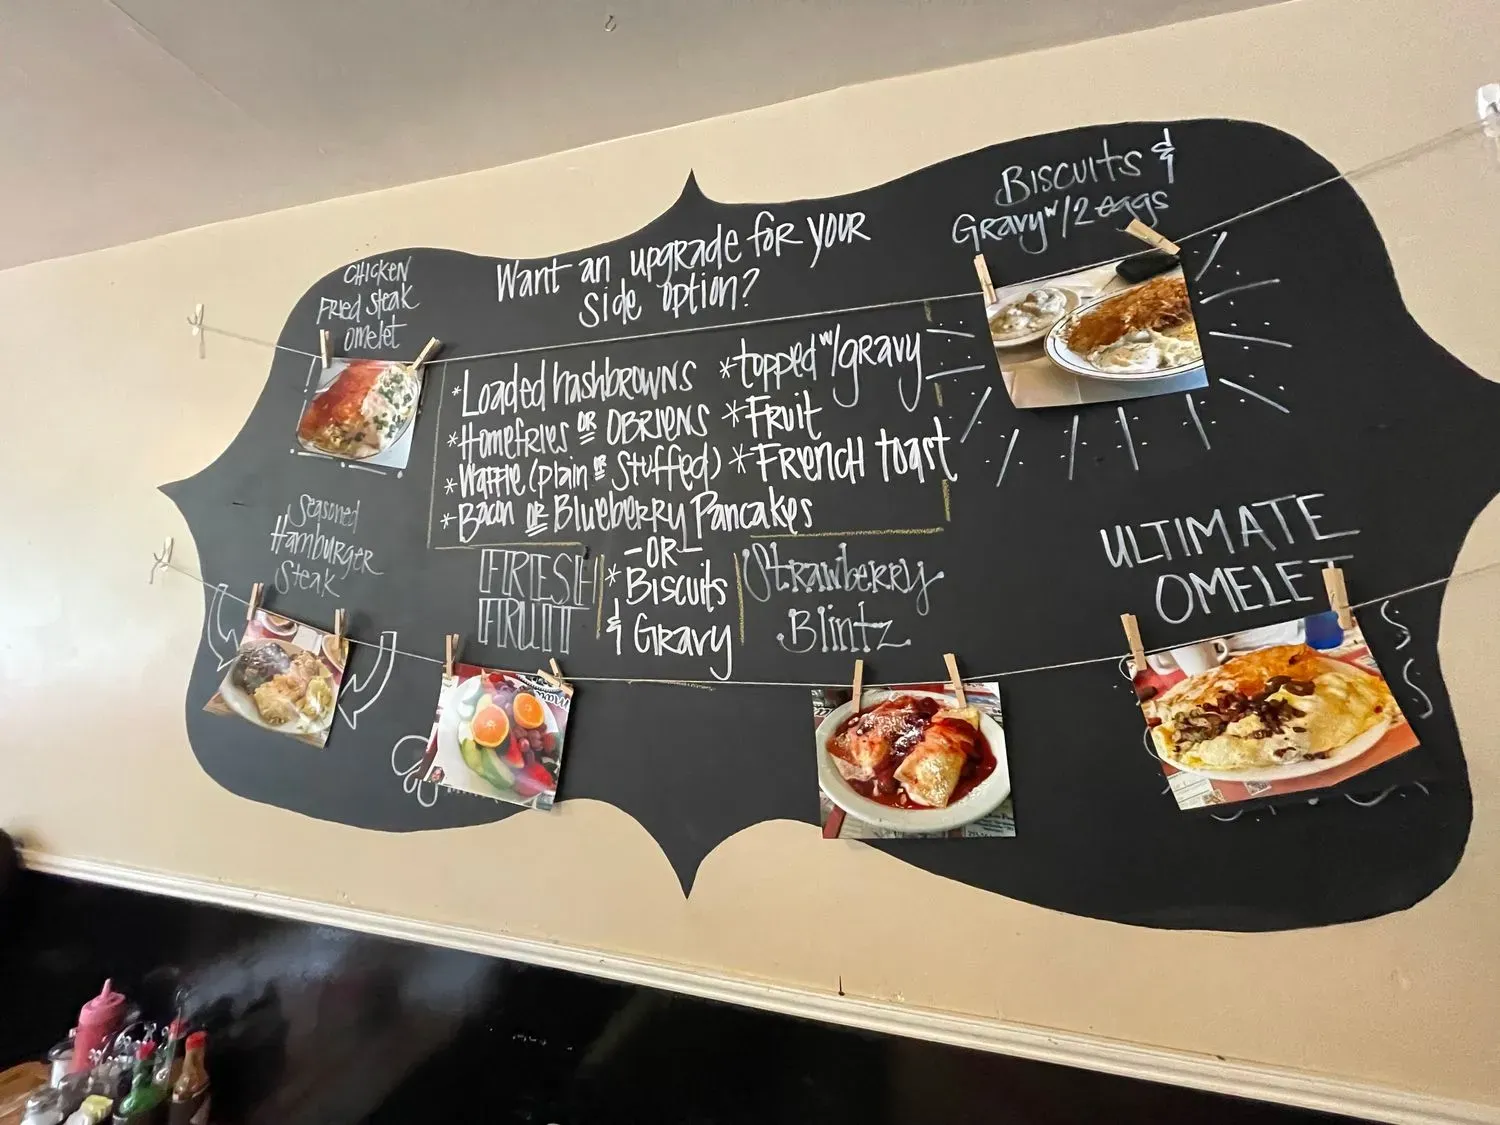 CHICKEN
FRied Steak
omelet
Want an upgrade for your
side option?
Biscuits &
Gravy w/2 eggs
*Loaded hashbrowns *topped w/gravy
*Homefries or OBRIENS *Fruit
*Waffle (plain or Stuffed) *French toast
*Bacon or Blueberry Pancakes
-OR-
*Biscuits
& Gravy
Seasoned
Hamburger
Steak
FRESH
FRUIT
Strawberry
Blintz
ULTIMATE
OMELET